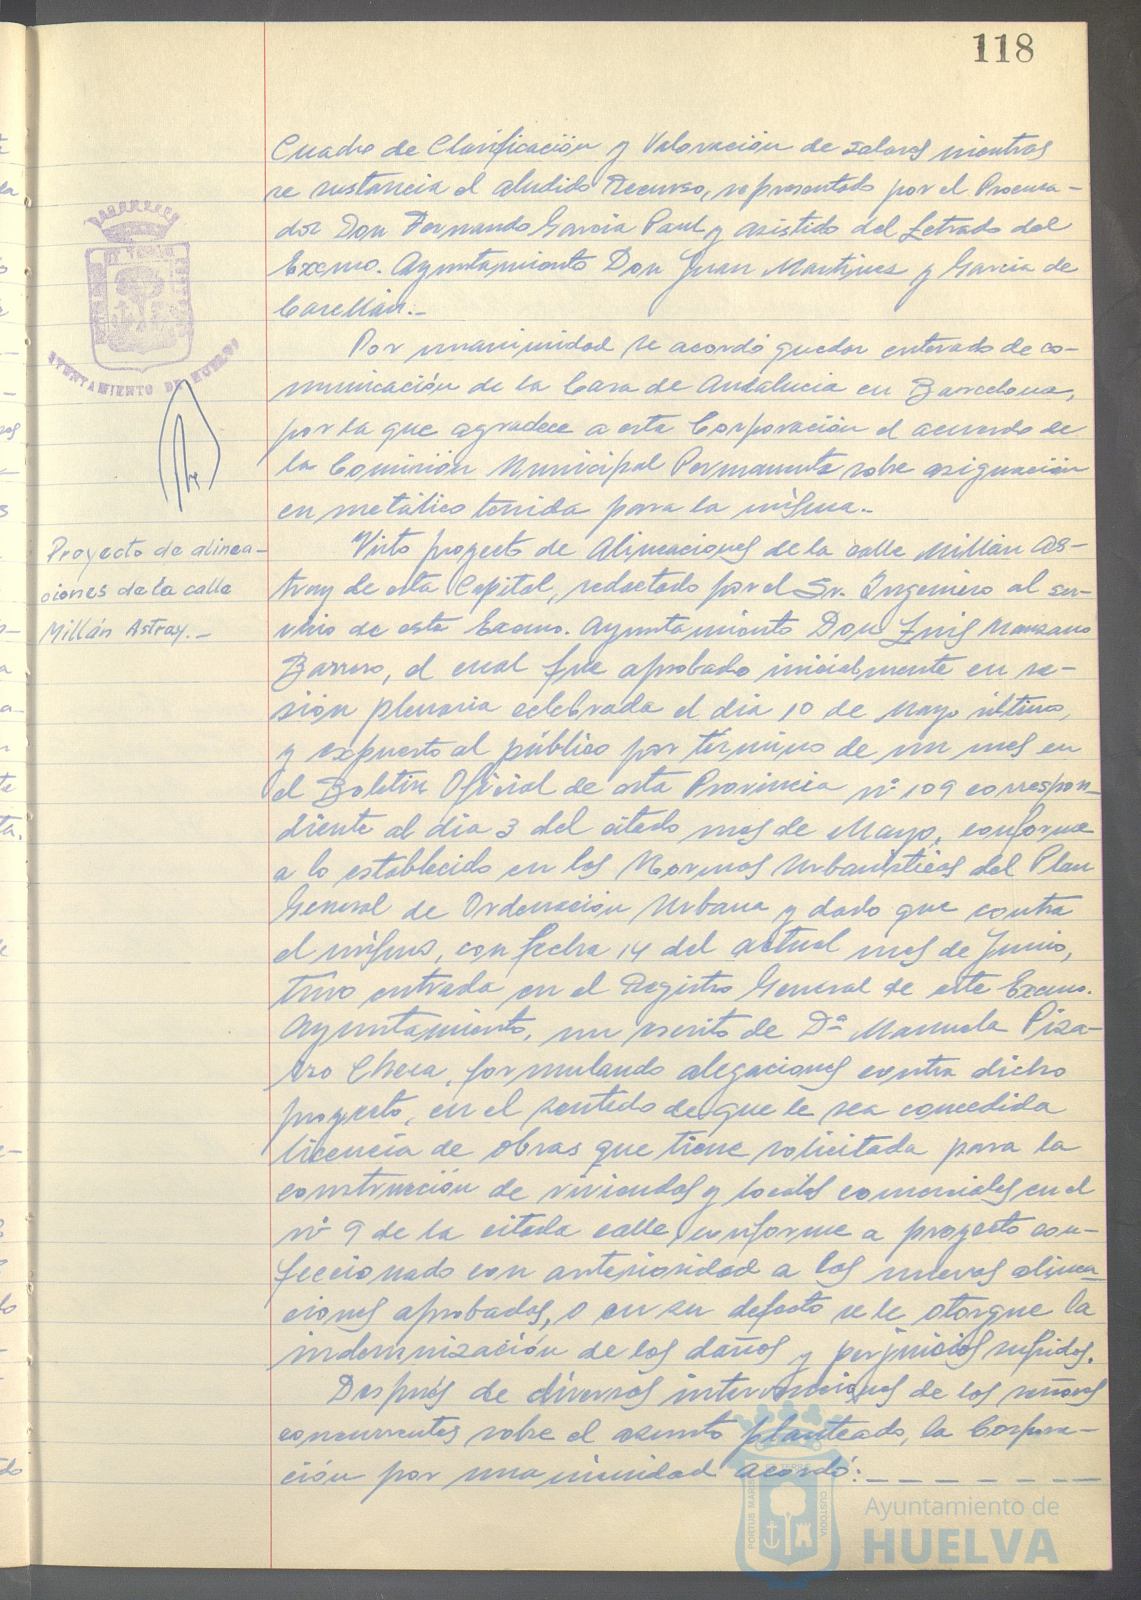 118
Cuadro de Clasificación y Valoración de solares mientras
se sustancia el aludido Recurso, representado por el Procura-
dor Don Fernando Garcia Paul y asistido del Letrado del
Excmo. Ayuntamiento Don Juan Martínez y García de
Casellán.-
Por unanimidad se acordó quedar enterado de co-
municación de la Casa de Andalucia en Barcelona,
por la que agradece a esta Corporación el acuerdo de
la Comisión Municipal Permanente sobre asignación
en metálico tenida para la misma.-
AYUNTAMIENTO DE HUELVA
Proyecto de alinea-
ciones de la calle
Millán Astray.-
Visto proyecto de Alineaciones de la calle Millán As-
tray de esta Capital, redactado por el Sr. Ingeniero al ser-
vicio de este Excmo. Ayuntamiento Don Luis Manzano
Barrero, el cual fue aprobado inicialmente en se-
sión plenaria celebrada el dia 10 de Mayo último,
y expuesto al público por término de un mes en
el Boletin Oficial de esta Provincia nº 109 correspon-
diente al dia 3 del citado mes de Mayo, conforme
a lo establecido en las Normas Urbanísticas del Plan
General de Ordenación Urbana y dado que contra
el mismo, con fecha 14 del actual mes de Junio,
tuvo entrada en el Registro General de este Excmo.
Ayuntamiento, un escrito de Dª Manuela Piza-
rro Checa, formulando alegaciones contra dicho
proyecto, en el sentido de que le sea concedida
licencia de obras que tiene solicitada para la
construcción de viviendas y locales comerciales en el
nº 9 de la citada calle, conforme a proyecto con-
feccionado con anterioridad a las nuevas alinea-
ciones aprobadas, o en su defecto se le otorgue la
indemnización de los daños y perjuicios sufridos.
Después de diversas intervenciones de los señores
concurrentes sobre el asunto planteado, la Corpora-
ción por unanimidad acordó:
PORTUS MARIS ET TERRAE CUSTODIA
Ayuntamiento de
HUELVA